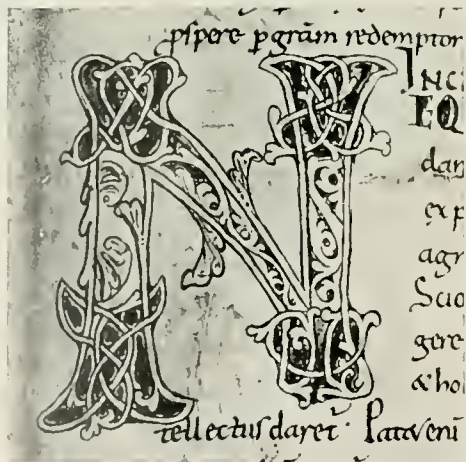 pspere p gram redemptor
INCI
EQ
N
dan
exp
agr
Scio
gere
& hoi
tellectus daret. Patuveni